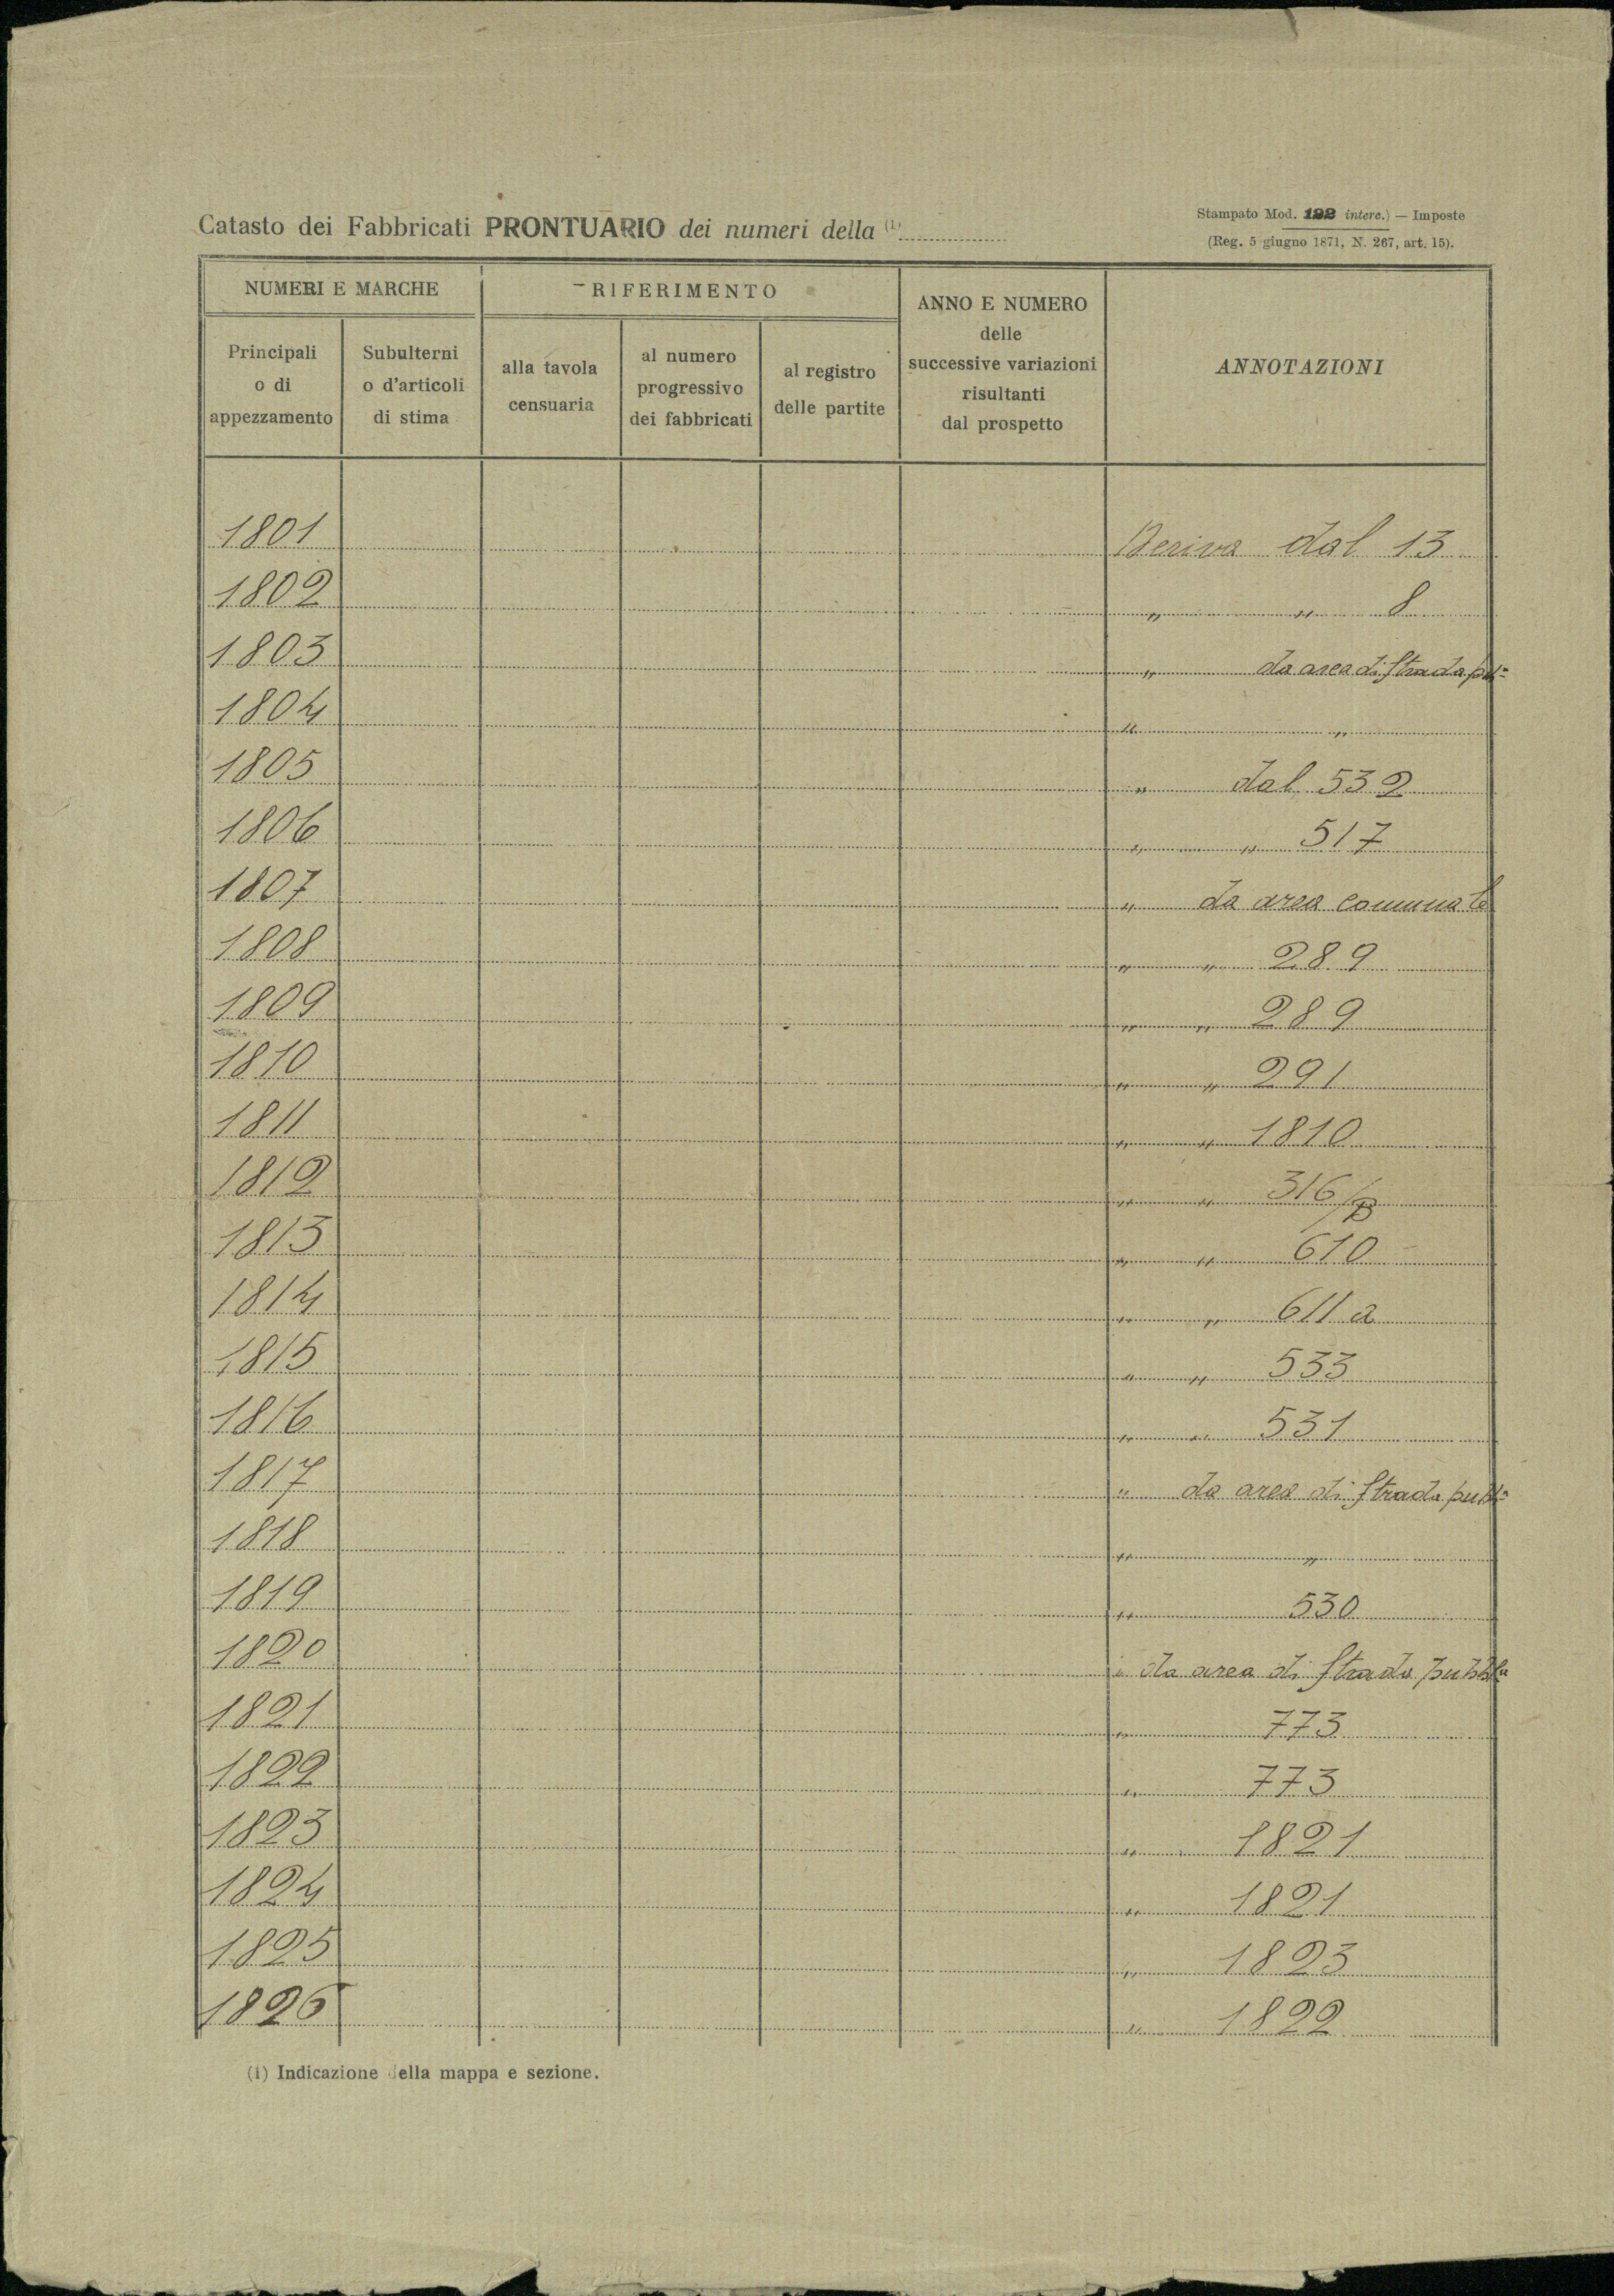 Catasto dei Fabbricati PRONTUARIO dei numeri della (1)
Stampato Mod. 122 interc.) — Imposte
(Reg. 5 giugno 1871, N. 267, art. 15).
NUMERI E MARCHE
RIFERIMENTO
ANNO E NUMERO
delle
successive variazioni
risultanti
dal prospetto
ANNOTAZIONI
Principali
o di
appezzamento
Subulterni
o d'articoli
di stima
alla tavola
censuaria
al numero
progressivo
dei fabbricati
al registro
delle partite
1801 Deriva dal 13
1802 „ „ 8
1803 „ da area di strada
1804 „ „
1805 „ dal 532
1806 „ „ 517
1807 „ da area comunale
1808 „ „ 289
1809 „ „ 289
1810 „ „ 291
1811 „ „ 1810
1812 „ „ 316/B
1813 „ „ 610
1814 „ „ 611 a
1815 „ „ 533
1816 „ „ 531
1817 „ da area di strada pubbª
1818 „ „
1819 „ 530
1820 „ da area di strada pubblª
1821 „ 773
1822 „ 773
1823 „ 1821
1824 „ 1821
1825 „ 1823
1826 „ 1822
(1) Indicazione della mappa e sezione.